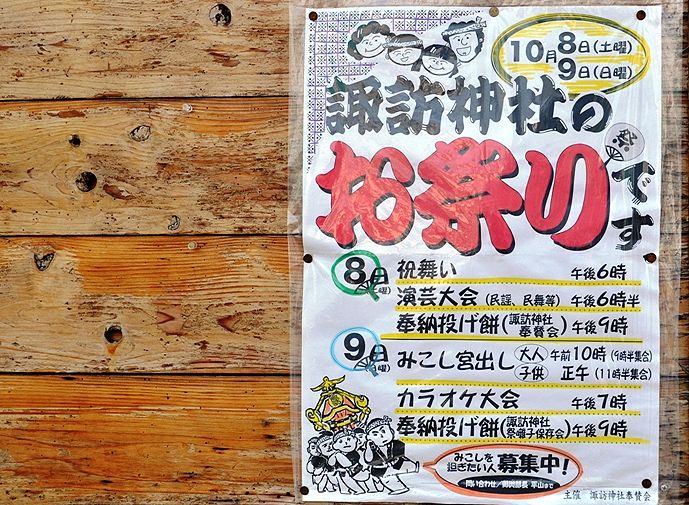 10月 8日(土曜)
9日(日曜)
諏訪神社の
お祭りです
祭
8日(土曜) 祝舞い 午後6時
演芸大会(民謡、民舞等) 午後6時半
奉納投げ餅(諏訪神社奉賛会) 午後9時
9日(日曜) みこし宮出し 大人 午前10時(9時半集合)
子供 正午(11時半集合)
カラオケ大会 午後7時
奉納投げ餅(諏訪神社祭囃子保存会) 午後9時
みこしを
担ぎたい人 募集中!
問い合わせ/
平山まで
主催 諏訪神社奉賛会